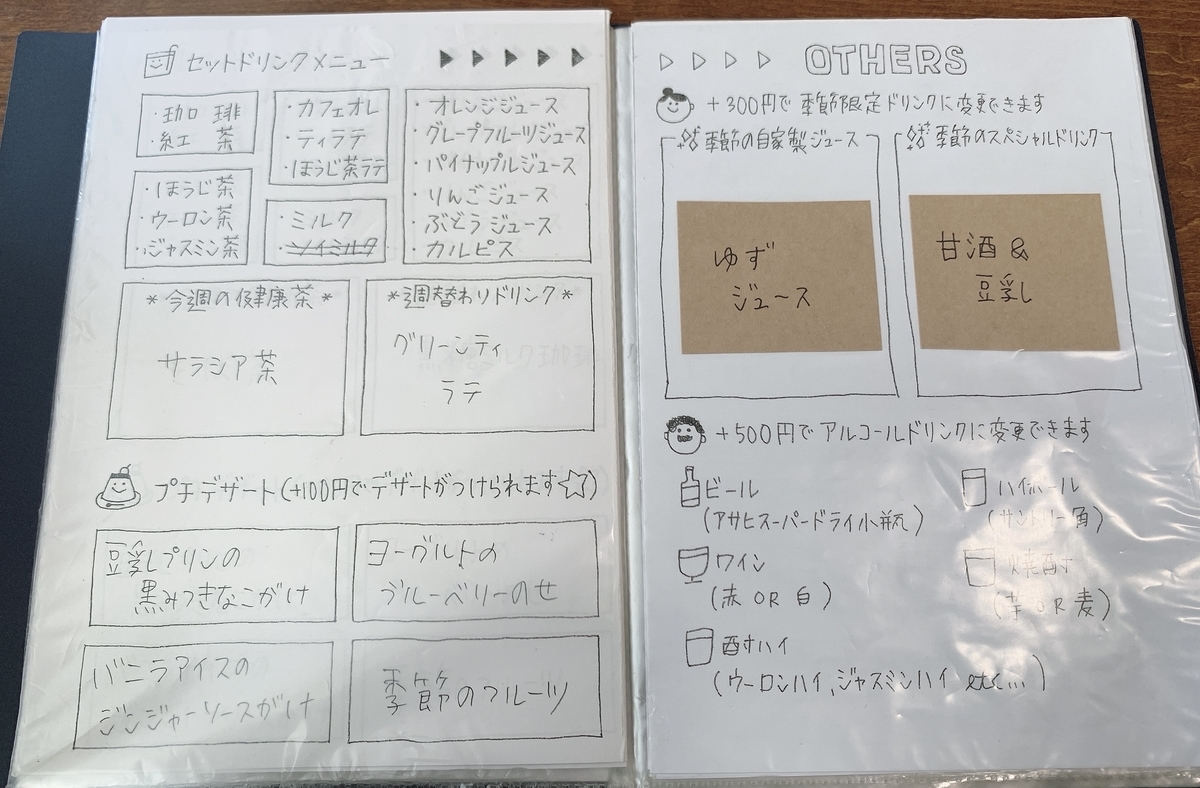 セットドリンクメニュー
・珈琲
・紅茶
・ほうじ茶
・ウーロン茶
・ジャスミン茶
・カフェオレ
・ティラテ
・ほうじ茶ラテ
・ミルク
・ソイミルク
・オレンジジュース
・グレープフルーツジュース
・パイナップルジュース
・りんごジュース
・ぶどうジュース
・カルピス
*今週の健康茶*
サラシア茶
*週替わりドリンク*
グリーンティ
ラテ
プチデザート(+100円でデザートがつけられます☆)
豆乳プリンの
黒みつきなこがけ
ヨーグルトの
ブルーベリーのせ
バニラアイスの
ジンジャーソースがけ
季節のフルーツ
OTHERS
+300円で季節限定ドリンクに変更できます
季節の自家製ジュース
ゆず
ジュース
季節のスペシャルドリンク
甘酒&
豆乳
+500円でアルコールドリンクに変更できます
ビール
(アサヒスーパードライ小瓶)
ワイン
(赤 OR 白)
酎ハイ
(ウーロンハイ,ジャスミンハイ etc...)
ハイボール
(サントリー角)
焼酎
(芋 OR 麦)